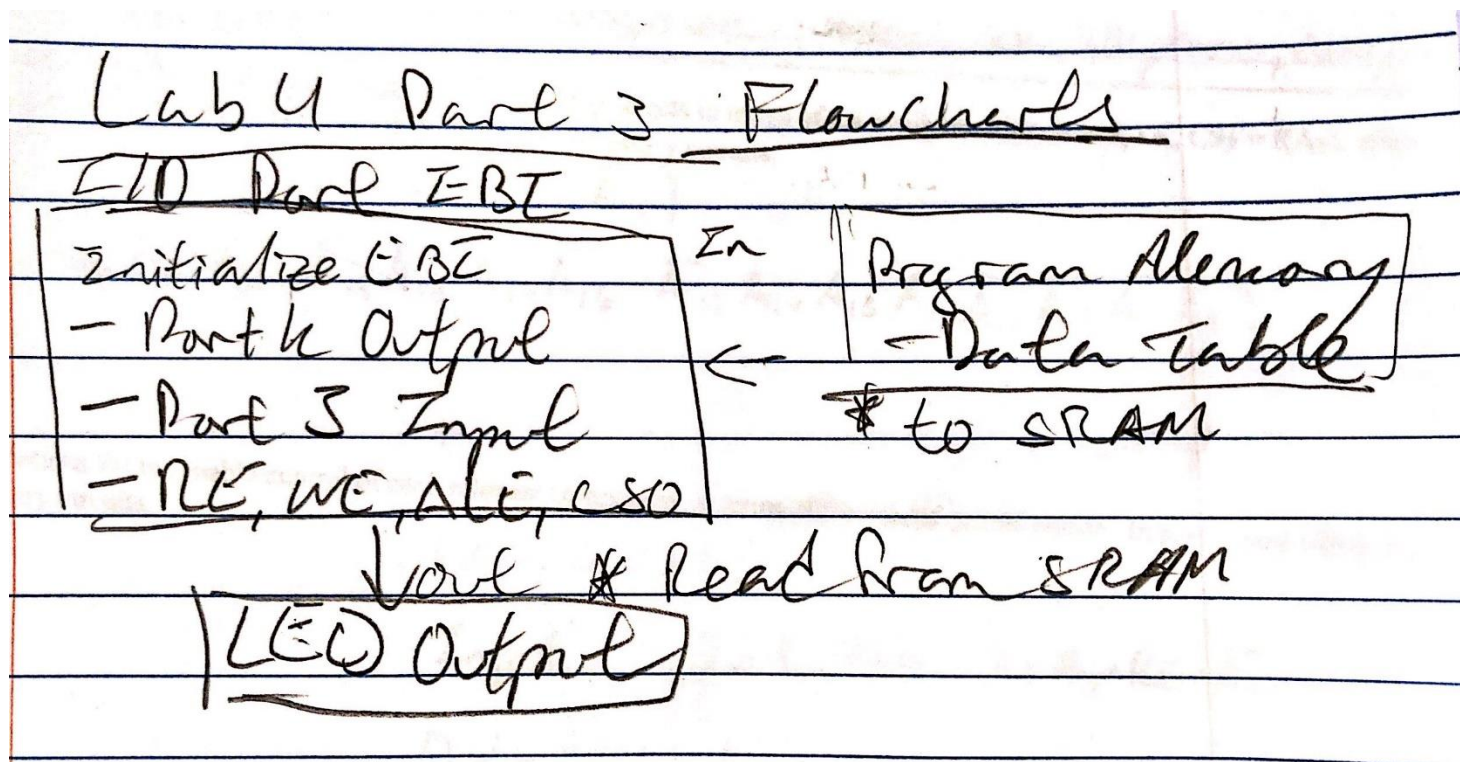 Lab 4 Part 3 Flowcharts
I/O Port EBI
Initialize EBI
- Port K Output
- Port J Input
- RE, WE, ALE, CS0
In
←
Program Memory
- Data Table
* to SRAM
↓ out * Read from SRAM
LED Output